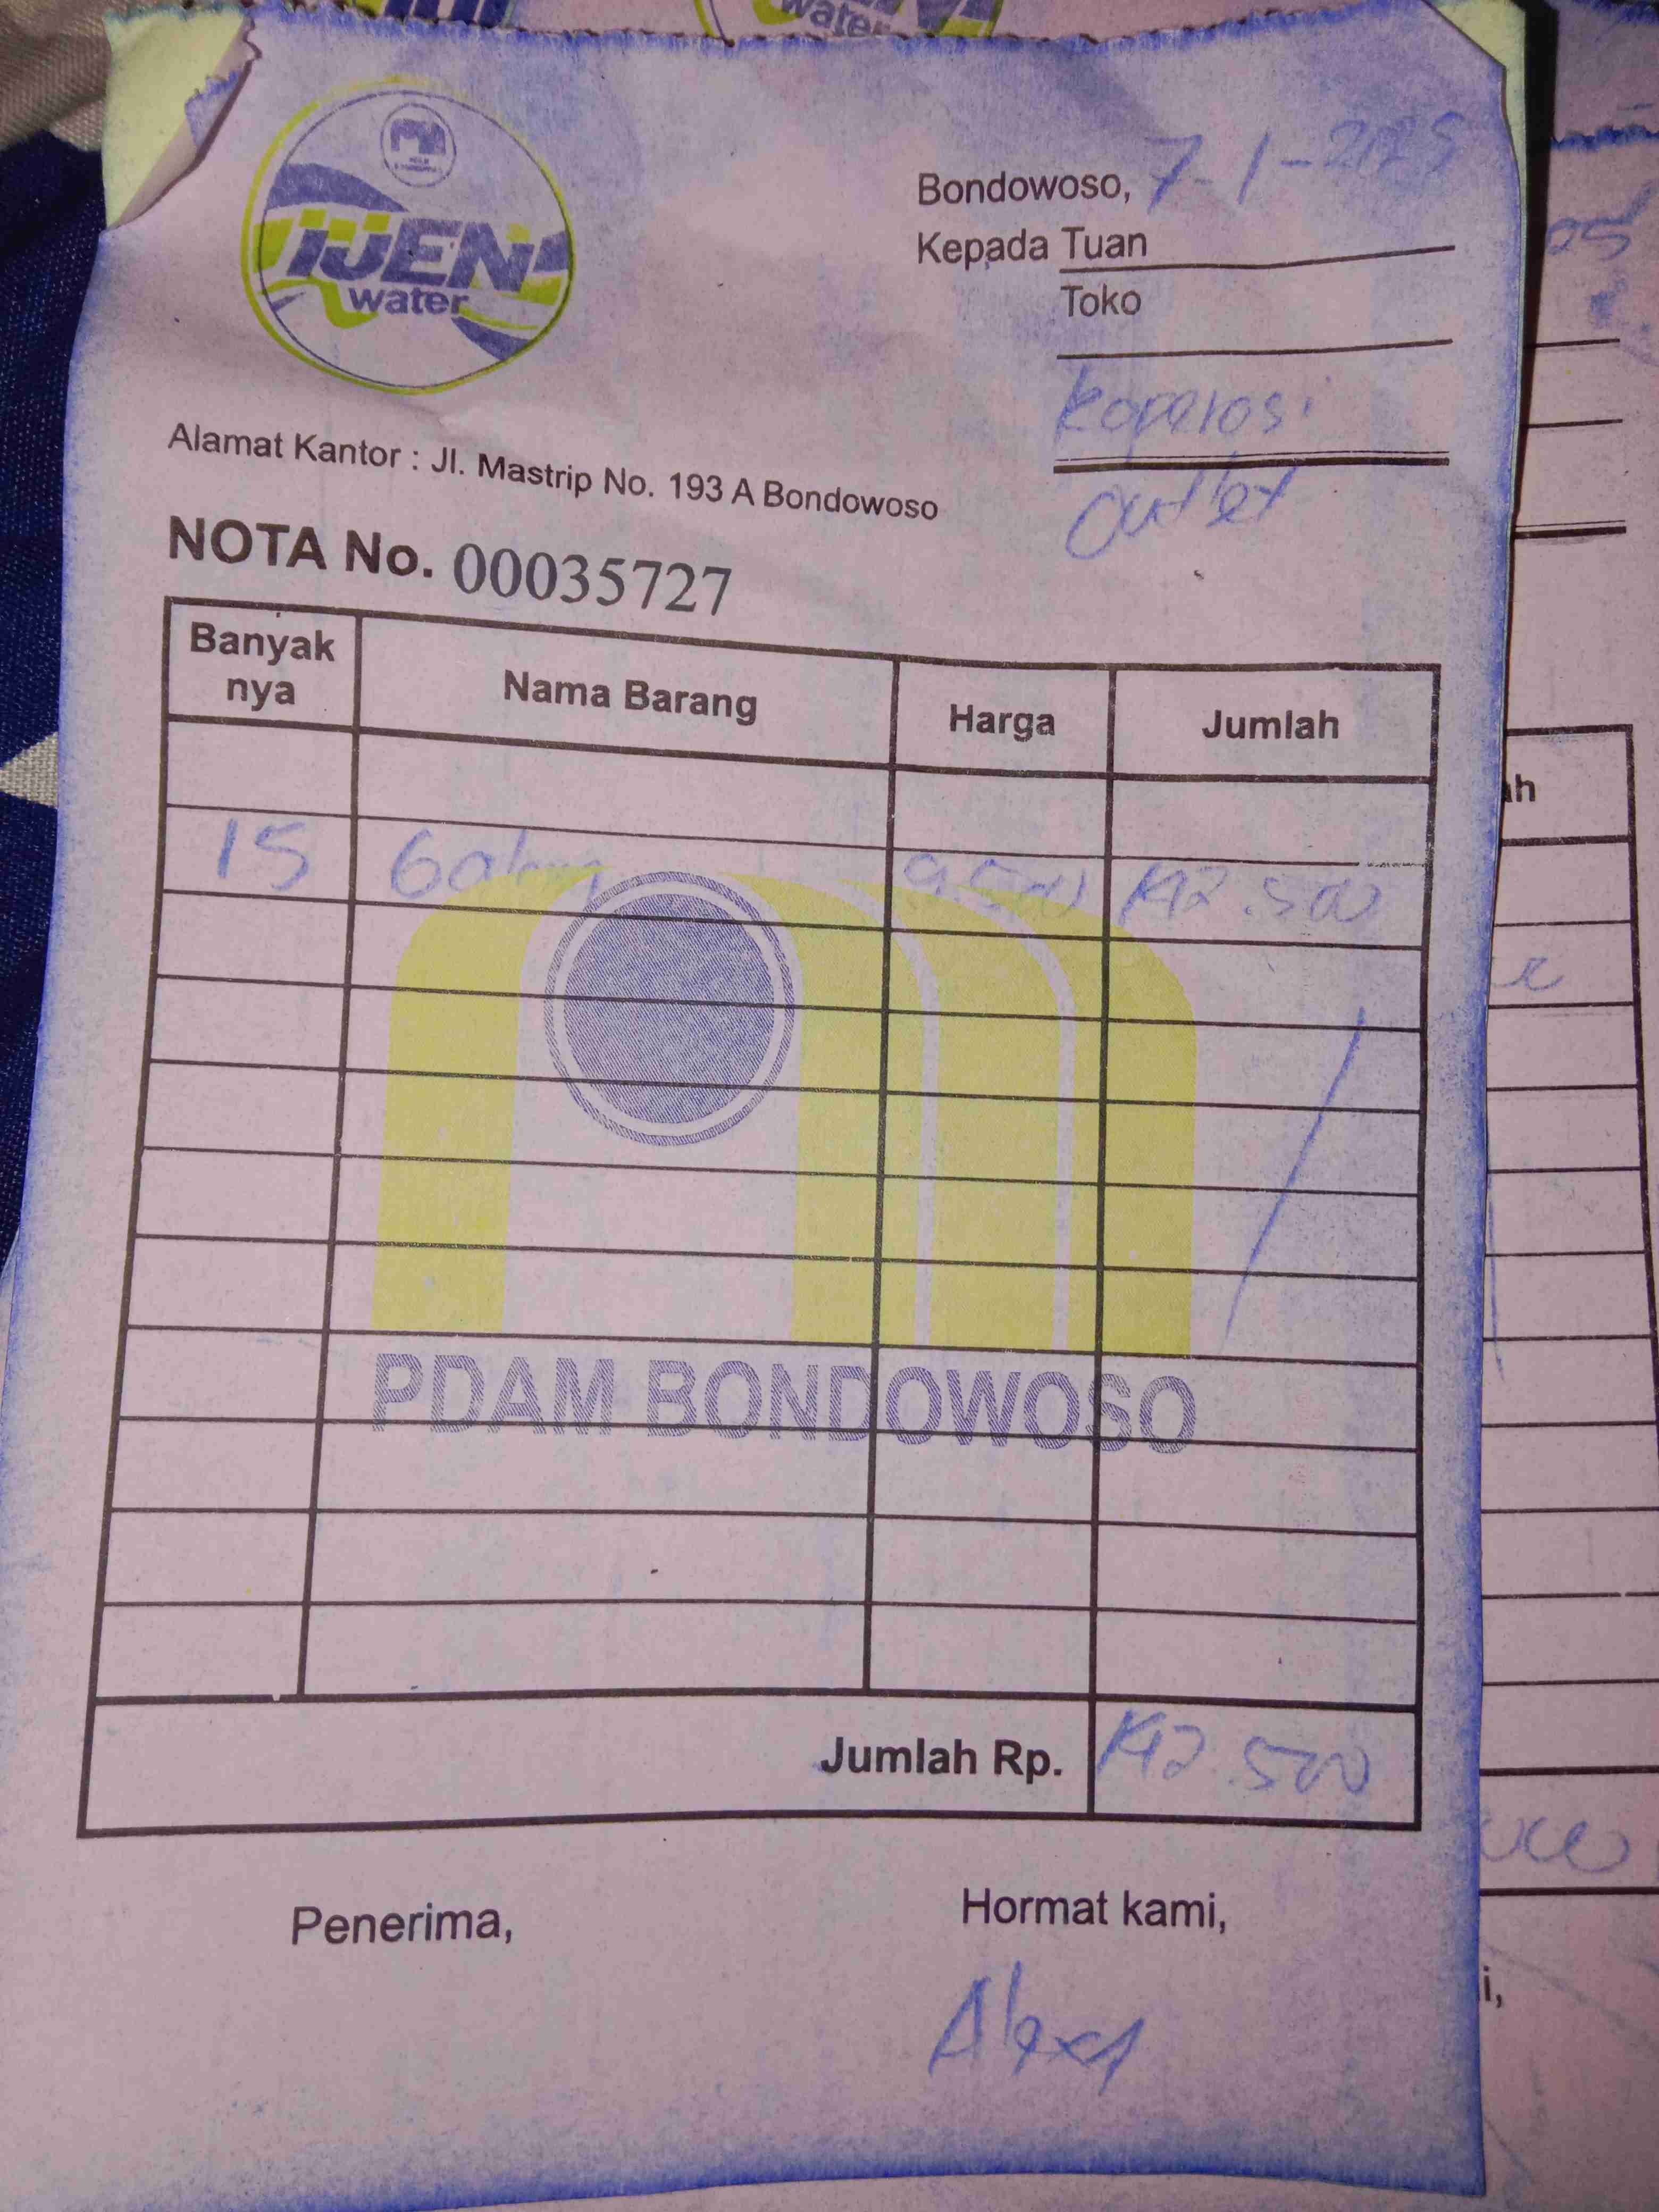 water
IJEN
water
Bondowoso, 7-1-2025
Kepada Tuan
Toko
Koperasi
outlet
Alamat Kantor : Jl. Mastrip No. 193 A Bondowoso
NOTA No. 00035727
Banyak nya Nama Barang Harga Jumlah
15 Galon 9.500 142.500
PDAM BONDOWOSO
Jumlah Rp. 142.500
Penerima, Hormat kami,
Alexa